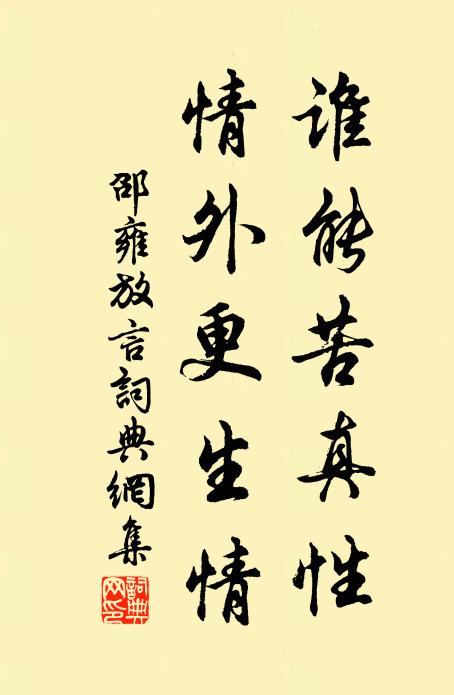 誰能苦真性
情外更生情
邵雍放言詞典網集
詞典網印